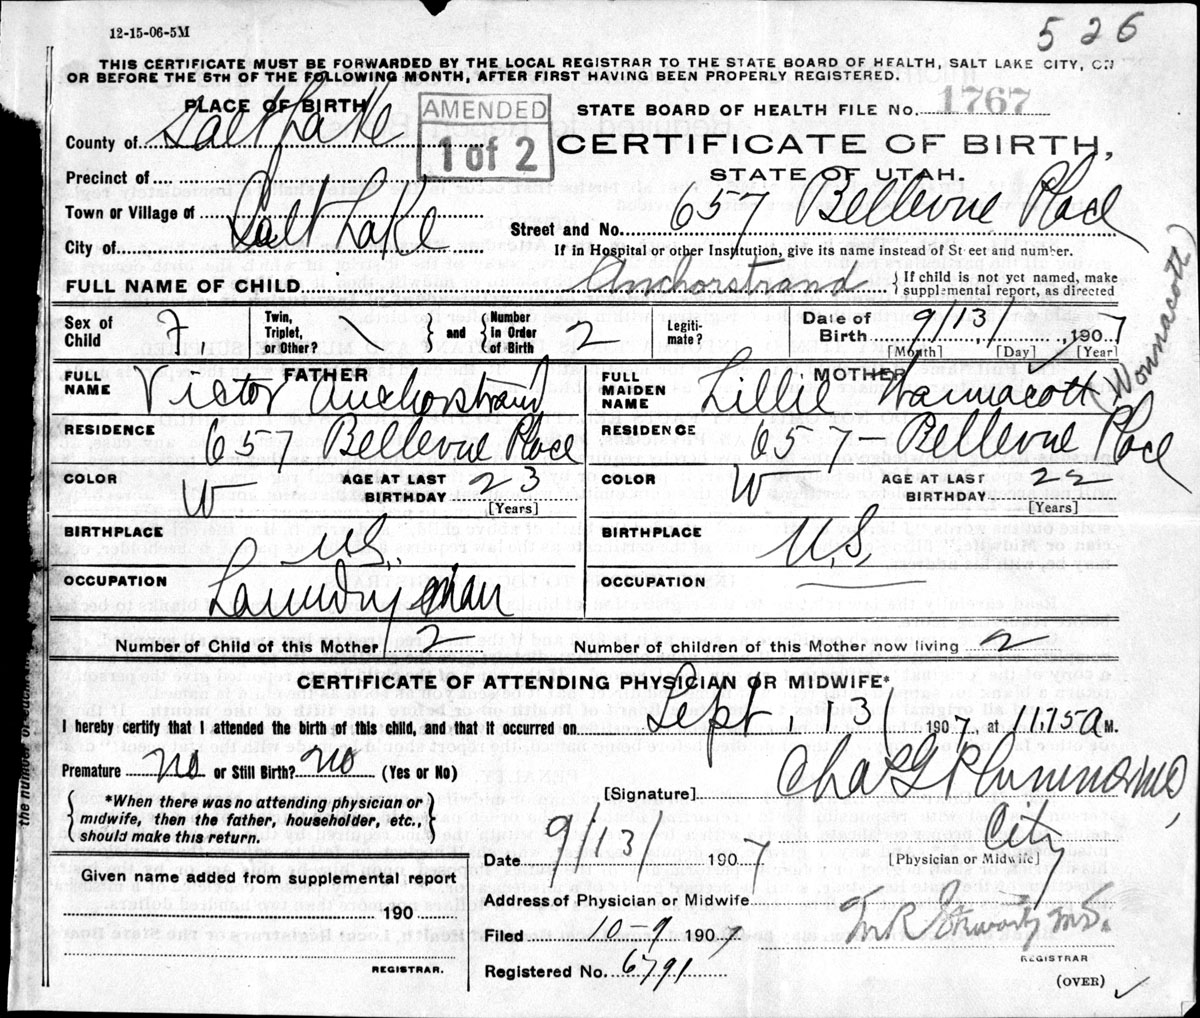 12-15-06-5M
526
THIS CERTIFICATE MUST BE FORWARDED BY THE LOCAL REGISTRAR TO THE STATE BOARD OF HEALTH, SALT LAKE CITY, ON
OR BEFORE THE 5TH OF THE FOLLOWING MONTH, AFTER FIRST HAVING BEEN PROPERLY REGISTERED.
PLACE OF BIRTH
AMENDED
1 of 2
STATE BOARD OF HEALTH FILE No. 1767
County of Salt Lake
CERTIFICATE OF BIRTH,
STATE OF UTAH.
Precinct of
Town or Village of
Street and No. 657 Bellevue Place
City of Salt Lake
If in Hospital or other Institution, give its name instead of Street and number.
FULL NAME OF CHILD Anchorstrand
If child is not yet named, make
supplemental report, as directed
Sex of Child F.
Twin, Triplet, or Other?
and
Number in Order of Birth 2
Legitimate?
Date of Birth 9/13/ 1907
[Month] [Day] [Year]
FATHER
FULL NAME Victor Anchorstrand
MOTHER
FULL MAIDEN NAME Lillie Wannacott
(Wonnacott)
RESIDENCE 657 Bellevue Place
RESIDENCE 657 - Bellevue Place
COLOR W
AGE AT LAST BIRTHDAY 23
[Years]
COLOR W
AGE AT LAST BIRTHDAY 22
[Years]
BIRTHPLACE U.S.
BIRTHPLACE U.S.
OCCUPATION Laundryman
OCCUPATION
Number of Child of this Mother 2
Number of children of this Mother now living 2
CERTIFICATE OF ATTENDING PHYSICIAN OR MIDWIFE*
I hereby certify that I attended the birth of this child, and that it occurred on Sept. 13 1907, at 11.15 A M.
Premature no or Still Birth? no (Yes or No)
[Signature] Chas G Plummer MD,
*When there was no attending physician or
midwife, then the father, householder, etc.,
should make this return.
City
[Physician or Midwife]
Date 9/13/ 1907
Given name added from supplemental report
190
REGISTRAR.
Address of Physician or Midwife
Filed 10-9 1907
REGISTRAR
Registered No. 6791
(OVER)